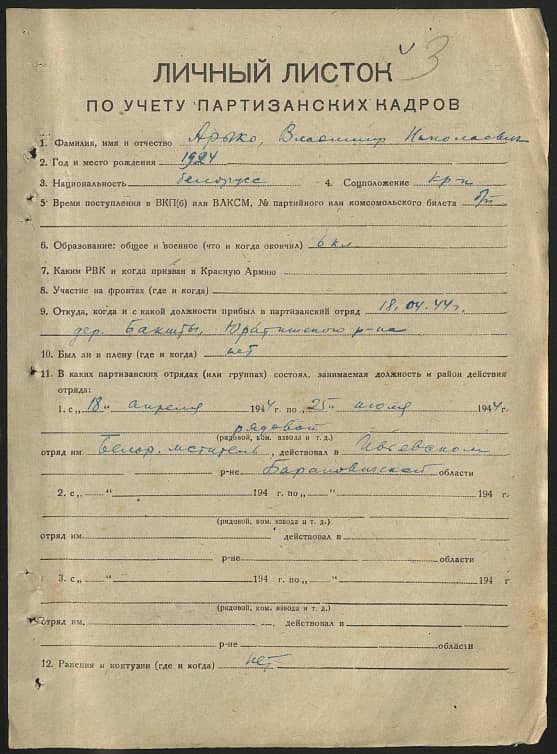 3
ЛИЧНЫЙ ЛИСТОК
ПО УЧЕТУ ПАРТИЗАНСКИХ КАДРОВ
1. Фамилия, имя и отчество Арыко, Владимир Николаевич
2. Год и место рождения 1924
3. Национальность белорусс 4. Соцположение кр-н
5 Время поступления в ВКП(б) или ВЛКСМ, № партийного или комсомольского билета б/п
6. Образование: общее и военное (что и когда окончил) 6 кл
7. Каким РВК и когда призван в Красную Армию
8. Участие на фронтах (где и когда)
9. Откуда, когда и с какой должности прибыл в партизанский отряд 18.04.44г.
дер. Бакшты, Юратишского р-на
10. Был ли в плену (где и когда) нет
11. В каких партизанских отрядах (или группах) состоял, занимаемая должность и район действия
отряда:
1. с „18" апреля 1944 г. по „25" июля 1944 г.
рядовой
(рядовой, ком. взвода и т. д.)
отряд им. Белор. мститель, действовал в Ивьевском
р-не Барановичской области
2. с „ " 194 г. по „ " 194 г.
(рядовой, ком. взвода и т. д.)
отряд им. действовал в
р-не области
3. с „ " 194 г. по „ " 194 г
(рядовой, ком. взвода и т. д.)
отряд им. действовал в
р-не области
12. Ранения и контузии (где и когда) нет